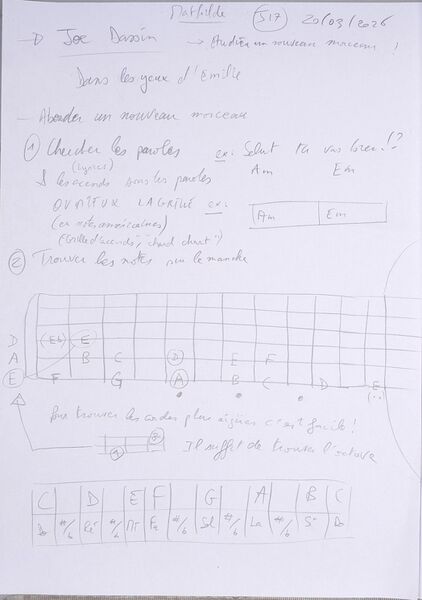 Mathilde S17 20/03/2026
→ Joe Dassin → Etudier un nouveau morceau !
Dans les yeux d'Emilie
— Aborder un nouveau morceau
① Chercher les paroles ex: Salut tu vas bien !?
(lyrics) Am Em
& les accords sous les paroles
OU MIEUX LA GRILLE ex: Am Em
(en notes américaines)
(Grille d'accords, "chord chart")
② Trouver les notes sur le manche
D (Eb) E
A B C D E F
E F G A B C D E
(..)
Pour trouver les cordes plus aigües c'est facile !
Il suffit de trouver l'octave
C D E F G A B C
Do #/b Ré #/b Mi Fa #/b Sol #/b La #/b Si Do